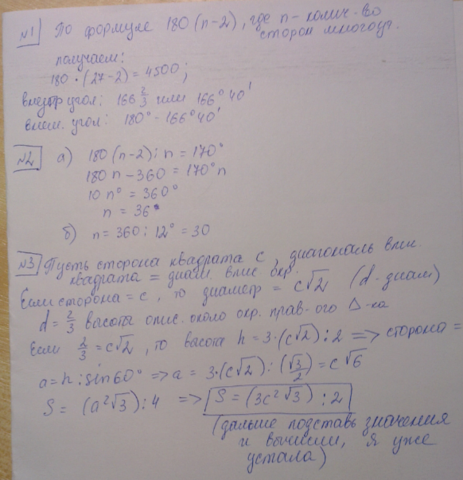 №1 По формуле 180 (n-2), где n - колич-во
сторон многоуг.
получаем:
180 · (27-2) = 4500;
внутр угол: 166 2/3 или 166°40'
внеш. угол: 180° - 166°40'
№2 а) 180 (n-2) : n = 170°
180 n - 360 = 170° n
10 n° = 360°
n = 36°
б) n = 360 : 12° = 30
№3 Пусть сторона квадрата c, диагональ впис.
квадрата = диам. впис окр.
Если сторона = c, то диаметр = c√2 (d - диам)
d = 2/3 высоты опис. около окр. прав-ого Δ-ка
Если 2/3 = c√2, то высота h = 3 · (c√2) : 2 => сторона =
a = h : sin 60° => a = 3 · (c√2) : (√3/2) = c√6
S = (a²√3) : 4 => S = (3c²√3) : 2
(дальше подставь значения
и вычисли, я уже
устала)